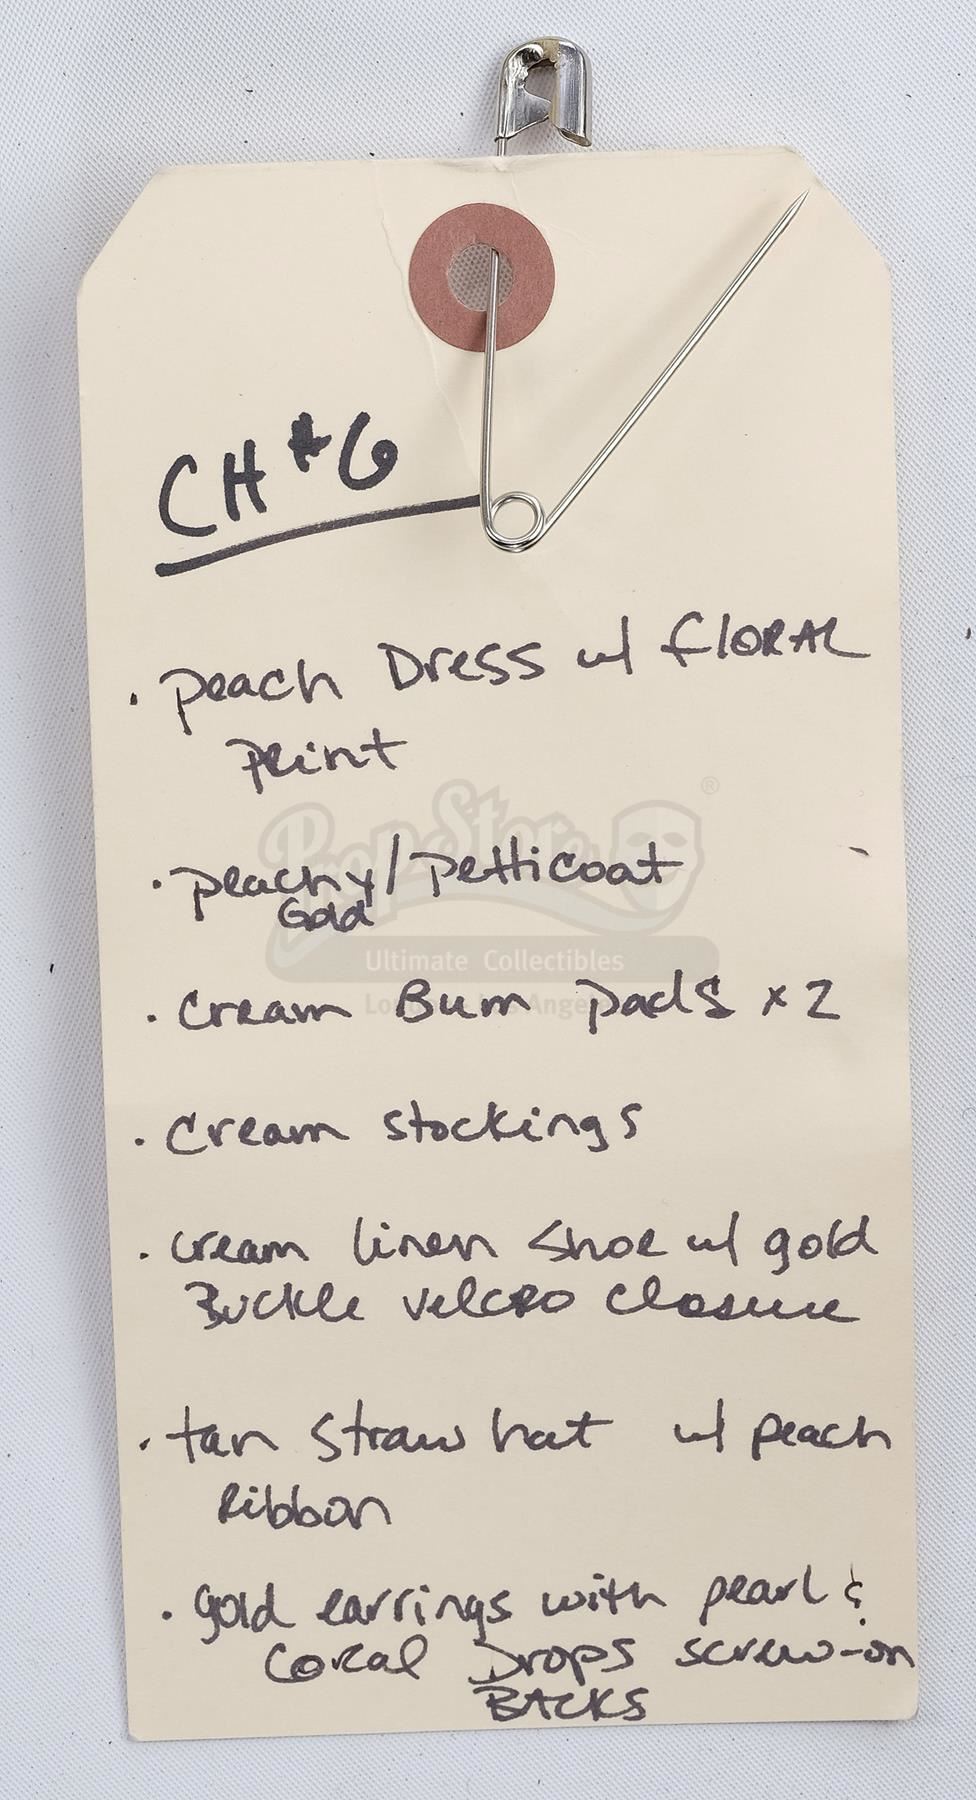 CH #6
· peach Dress w/ flORAL
print
· peachy/petticoat
Gold
· cream Bum pads x 2
· Cream stockings
· cream linen shoe w/ gold
Buckle velcro closure
· tan straw hat w/ peach
Ribbon
· gold earrings with pearl &
Coral Drops screw-on
BACKS
PropStore ®
Ultimate Collectibles
London · Los Angeles